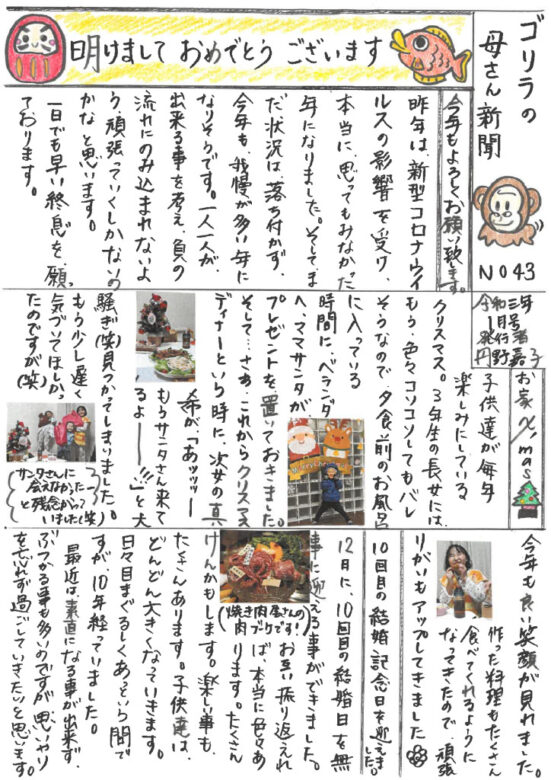 明けまして おめでとう ございます
ゴリラの
母さん新聞
NO43
令和三年
1月号
発行者
円野嘉子
今年もよろしくお願い致します。
昨年は、新型コロナウイ
ルスの影響を受け、
本当に、思ってもみなかった
年になりました。そしてま
だ状況は、落ち付かず、
今年も、我慢が多い年に
なりそうです。一人一人が、
出来る事を考え、負の
流れにのみ込まれないよ
う、頑張っていくしかないの
かなと思います。
一日でも早い終息を、願っ
ております。
お家X'mas
子供達が毎年
楽しみにしている
クリスマス。3年生の長女には、
もう、色々コソコソしてもバレ
そうなので、夕食前のお風呂
に入っている
時間に、ベランダ
へ、ママサンタが、
プレゼントを置いておきました。
そして…さあ、これからクリスマス
ディナーという時に、次女の真
希が、「あッッッー
もうサンタさん来て
るよー!!!」と大
騒ぎ(笑)見つかってしまいました。
もう少し遅く
気づいてほしかっ
たのですが(笑)
サンタさんに
会えなかったー
と残念がって
いました(笑)
今年も良い笑顔が見れました。
作った料理もたくさん
食べてくれるように
なってきたので、頑張
りがいもアップしてきました
10回目の結婚記念日を迎えました。
12月に、10回目の結婚日を無
事に迎える事ができました。
お互い振り返えれ
ば本当に色々あ
ります。たくさん
けんかもします。楽しい事も、
たくさんあります。子供達は、
どんどん大きくなっていきます。
日々目まぐるしくあっという間で
すが、10年経っていました。
最近は、素直になる事が出来ず、
ぶつかる事も多いのですが、思いやり
を忘れず過ごしていきたいと思います
(焼き肉屋さんの
肉ブーケです!)